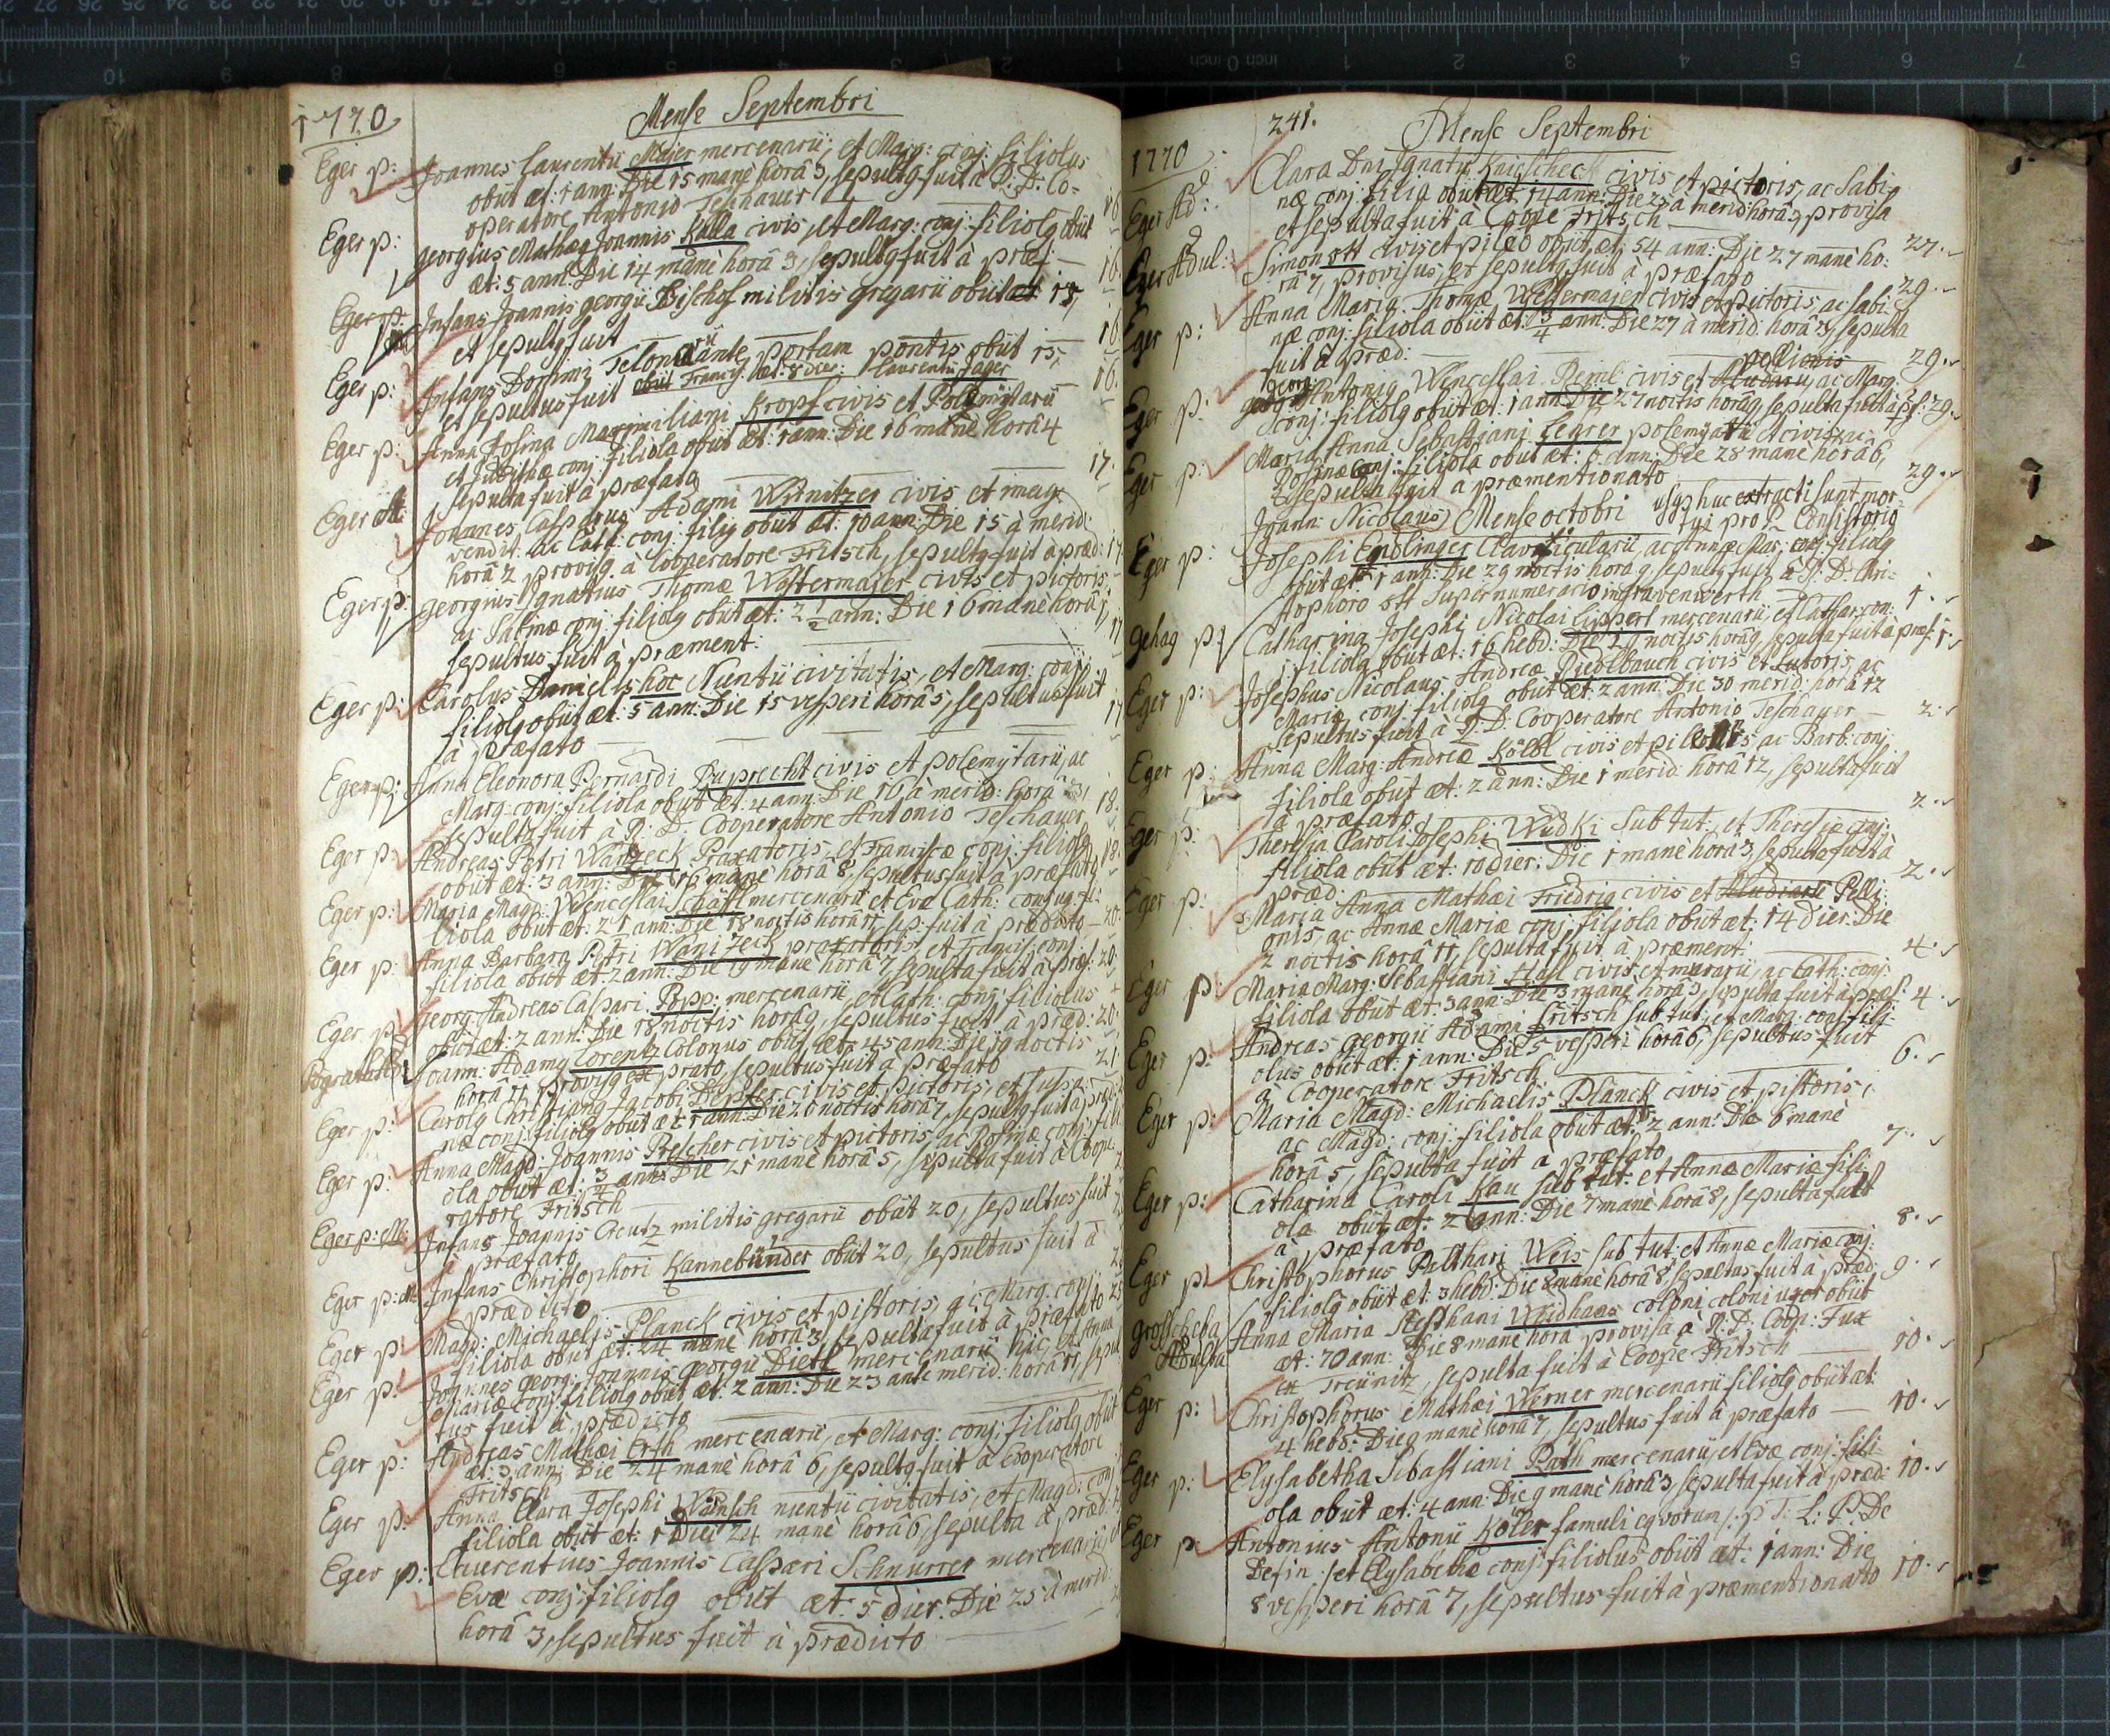 1770
Mense Septembri
Eger p: Joannes Laurentii Majer mercenarii, et Marg: conj: filiolus
obiit æt: 1 ann: Die 15 manè horâ 3, sepultq fuit à R: D: Co-
operatore Antonio Teschauer
Eger p: Georgius Mathæq Joannis Kölla civis, et Marg: conj: filiolq obiit
æt: 5 ann: Die 14 manè horâ 3, sepultq fuit à præf: — 16.
Eger p: Infans Joannis Georgii Bischof militis gregarii obiit 15,
et sepultq fuit 16.
Eger p: Infans Domini Telonarii ante portam pontis obiit 15,
et sepultus fuit Francis: æt: 8 dier: Laurentii Jager 16.
Eger p: Anna Rosina Maximiliani Kropf civis et Polemÿtarii
et Judithæ conj: filiola obiit æt: 1 ann: Die 16 manè horâ 4
sepulta fuit à præfato 17.
Eger Joannes Casparus Adami Wirnitzer civis et merg:
vendit: ac Cath: conj: filiq obiit æt: 10 ann: Die 15 à merid:
horâ 2 provisq à Cooperatore Fritsch, sepultq fuit à præd: 17
Eger p: Georgius Ignatius Thomæ Wostermajer civis et pictoris,
ac Sabinæ conj: filiolq obiit æt: 2 1/2 ann: Die 16 manè horâ
sepultus fuit à præment: 17
Eger p: Carolus Danielis hoc Nuntii civitatis, et Marg: conj:
filiolq obiit æt: 5 ann: Die 15 vesperi horâ 5, sepultus fuit
à præfato 17
Eger p: Anna Eleonora Bernardi Ruprecht civis et polemÿtarii, ac
Marg: conj: filiola obiit æt: 4 ann: Die 16 à merid: horâ 3,
sepulta fuit à R: D: Cooperatore Antonio Teschauer 18.
Eger p: Andreas Petri Wanizeck Praxatoris, et Franciscæ conj: filiolq
obiit æt: 3 ann: Die 16 manè horâ 8, sepultus fuit à præfato 18.
Eger p: Maria Magd: Wenceslai Schäffl mercenarii et Evæ Cath: conjug: fi-
liola obiit æt: 21 ann: Die 18 noctis horâ 11, sep: fuit à prædicto — 20.
Eger p: Anna Barbara Petri Wanizeck praxatoris, et Francis: conj:
filiola obiit æt: 2 ann: Die 19 manè horâ 7, sepulta fuit à præf: 20.
Eger p: Georg Andreas Caspari Popp: mercenarii, et Cath: conj: filiolus
obiit æt: 2 ann: Die 18 noctis horâ 9, sepultus fuit à præd: 20.
Joann: Adamq Lorentz Colonus obiit æt: 45 ann: Die 19 noctis
horâ 11 provisq ex prato, sepultus fuit à præfato 21.
Eger p: Carolq Christianq Jacobi Depser civis et pictoris, et Susan-
næ conj: filiolq obiit æt: 1 ann: Die 20 noctis horâ 7, sepultq fuit à præd:
Eger p: Anna Magd: Joannis Prescher civis et pictoris, ac Rosinæ conj: fili-
ola obiit æt: 3/4 ann: Die 21 manè horâ 5, sepulta fuit à Coope-
ratore Fritsch
Eger p: Infans Joannis Creutz militis gregarii obiit 20, sepultus fuit
à præfato
Eger p: Infans Christophori Kannebünder obiit 20, sepultus fuit à
prædicto
Eger p: Magd: Michaelis Planck civis et pistoris, ac Marg: conj:
filiola obiit æt: 24 manè horâ 3, sepulta fuit à præfato 25
Eger p: Joannes Georg: Joannis Georgii Dietl mercenarii hic, et Anna
Mariæ conj: filiolq obiit æt: 2 ann: Die 23 ante merid: horâ 11, sepul-
tus fuit à prædicto
Eger p: Andreas Mathæi Erth mercenarii, et Marg: conj: filiolq obiit
æt: 3 ann: Die 24 manè horâ 6, sepultq fuit à Cooperatore
Fritsch
Eger p: Anna Clara Josephi Wünsch nuntii civitatis, et Magd: conj:
filiola obiit æt: 1 Die 24 manè horâ 6, sepulta à præd:
Eger p: Laurentius Joannis Caspari Schnurrer mercenarii, et
Evæ conj: filiolq obiit æt: 5 dier: Die 25 à merid:
horâ 3, sepultus fuit à prædicto
241.
1770
Mense Septembri
Eger Ad: Clara Dni Ignatii Kniescheck civis et pictoris, ac Sabi-
næ conj: filia obiit æt: 14 ann: Die 25 à merid: horâ 3, provisa
et sepulta fuit à Coope Fritsch 27.
Eger Adul: Simon Ott civis et pileo obiit, æt: 54 ann: Die 27 manè ho-
râ 7, provisus, et sepultq fuit à præfato 29.
Eger p: Anna Maria Thomæ Wostermajer civis et pictoris, ac Sabi-
næ conj: filiola obiit æt: 3/4 ann: Die 27 à merid: horâ 3, sepulta
fuit à præd: 29.
Eger p: Georg Antoniq Wenceslai Reml civis et pellionis ac Marg:
conj: filiolq obiit æt: 1 ann: Die 27 noctis horâ 9, sepulta fuit à pf: 29.
Eger p: Maria Anna Sebastiani Lehrer polemÿtarii et civis, ac
Rosinæ conj: filiola obiit æt: 6 ann: Die 28 manè horâ 6,
sepulta fuit à præmentionato 29.
Joann: Nicolaus Mense octobri usq huc extracti sunt mor-
tui pro R. Consistorio
Eger p: Josephi Endlinger Clavicularii, ac Annæ Mar: conj: filiolq
obiit æt: 1 ann: Die 29 noctis horâ 9, sepultq fuit à R: D: Chri-
stophoro Ott Supernumerario in gravenwerth 1.
Gehag p: Catharina Josephi Nicolai Lippert mercenarii, et Cathar: con:
filiolq obiit æt: 16 hebd: Die 29 noctis horâ 9, sepulta fuit à præf: 1.
Eger p: Josephus Nicolaus Andreæ Riedlbauch civis et sutoris, ac
Mariæ conj: filiolq obiit æt: 2 ann: Die 30 merid: horâ 12
sepultus fuit à R: D: Cooperatore Antonio Teschauer — 2.
Eger p: Anna Marg: Andreæ Kölbl civis et pileonis, ac Barb: conj:
filiola obiit æt: 2 ann: Die 1 merid: horâ 12, sepulta fuit
à præfato 2.
Eger p: Theresia Caroli Josephi Wudki Sub tut: et Theresiæ conj:
filiola obiit æt: 10 dier: Die 1 manè horâ 3, sepulta fuit à
præd: 2.
Eger p: Maria Anna Mathæi Friedrig civis et Pelli-
onis, ac Annæ Mariæ conj: filiola obiit æt: 14 dier: Die
2 noctis horâ 11, sepulta fuit à præment: 4.
Eger p: Maria Marg: Sebastiani Hasl civis et murarii, ac Cath: conj:
filiola obiit æt: 3 ann: Die 3 manè horâ 3, sepulta fuit à præf: 4.
Eger p: Andreas Georgii Adami Fritsch sub tut: et Marg: conj: fili-
olus obiit æt: 1 ann: Die 5 vesperi horâ 6, sepultus fuit
à Cooperatore Fritsch 6.
Eger p: Maria Magd: Michaelis Planck civis et pistoris,
ac Magd: conj: filiola obiit æt: 2 ann: Die 6 manè
horâ 5, sepulta fuit à præfato 7.
Eger p: Catharina Caroli Kau sub tut: et Annæ Mariæ fili-
ola obiit æt: 2 ann: Die 7 manè horâ 8, sepulta fuit
à præfato 8.
Eger p: Christophorus Balthari Weis sub tut: et Annæ Mariæ conj:
filiolq obiit æt: 3 hebd: Die 8 manè horâ 8, sepultus fuit à præd: 9.
Anna Maria Stephani Weidhaas coloni coloni uxor obiit
Adulta æt: 70 ann: Die 8 manè hora provisa à R: D: Coop: Fux
ex Treünitz, sepulta fuit à Coope Fritsch — 10.
Eger p: Christophorus Mathæi Werner mercenarii filiolq obiit æt:
4 hebd: Die 9 manè horâ 7, sepultus fuit à præfato — 10.
Eger p: Elysabetha Sebastiani Rath mercenarii, et Evæ conj: fili-
ola obiit æt: 4 ann: Die 9 manè horâ 3, sepulta fuit à præd: 10.
Eger p: Antonius Antonii Köler famuli eqvorum /: p T: L: P: De
Defin: / et Elysabethæ conj: filiolus obiit æt: 1 ann: Die
8 vesperi horâ 7, sepultus fuit à præmentionato 10.